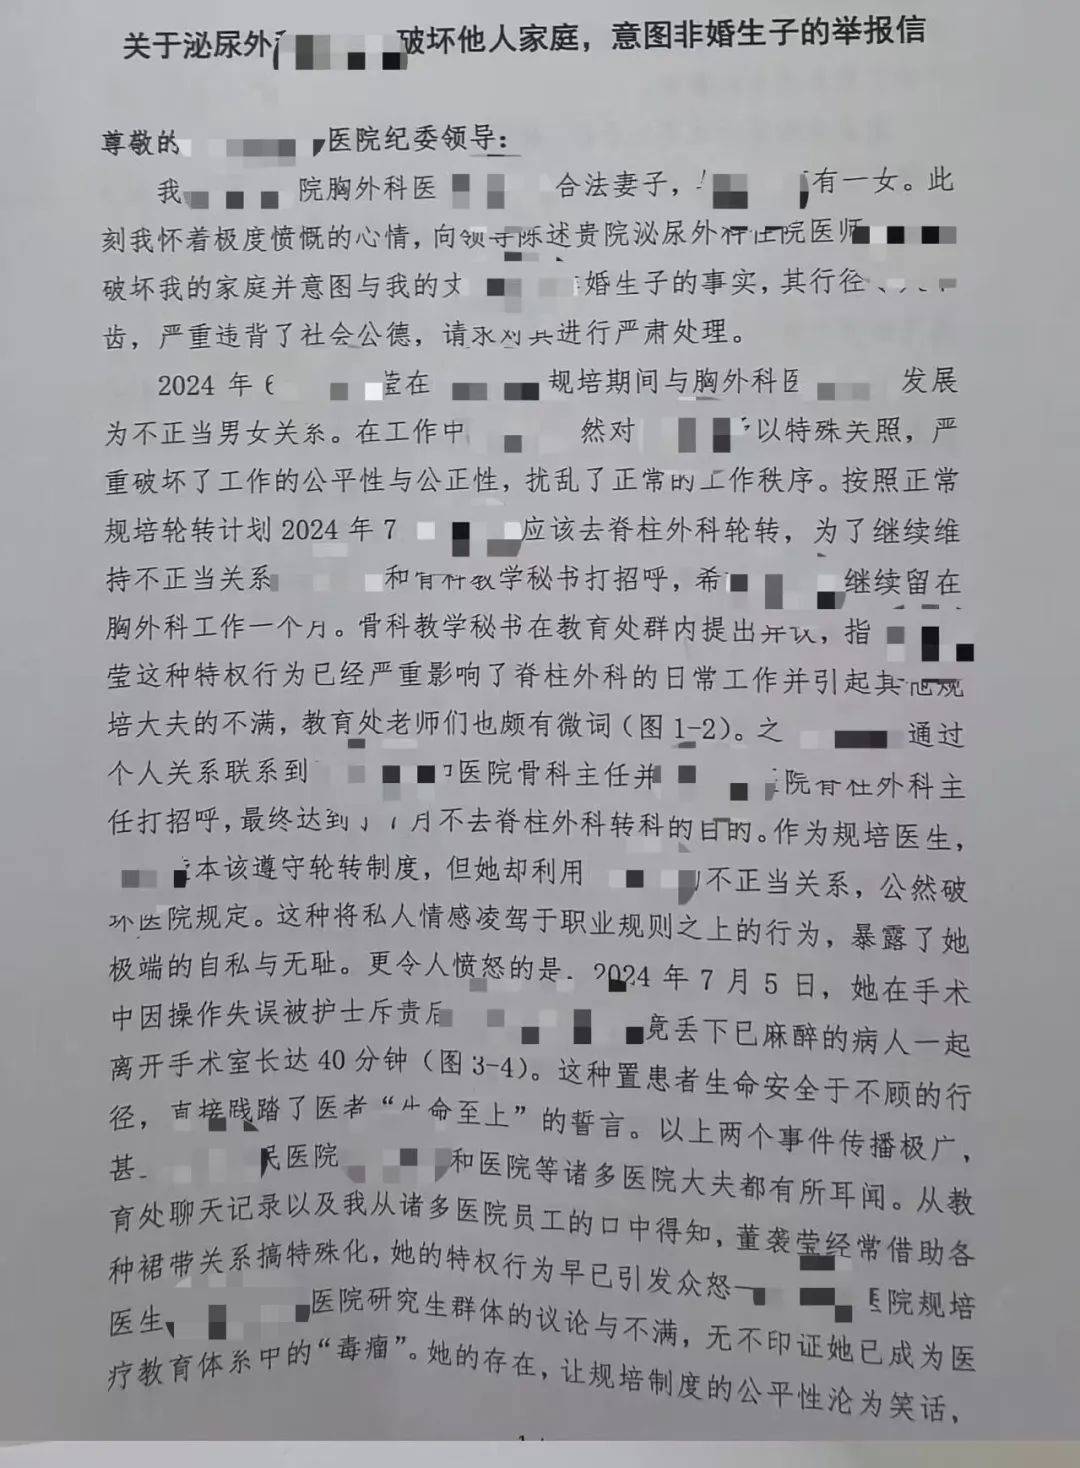 关于泌尿外 破坏他人家庭，意图非婚生子的举报信
尊敬的 医院纪委领导：
我 院胸外科医 合法妻子， 有一女。此
刻我怀着极度愤慨的心情，向领导陈述贵院泌尿外科住院医师
破坏我的家庭并意图与我的丈 婚生子的事实，其行径
齿，严重违背了社会公德，请求对其进行严肃处理。
2024 年 6 莹在 规培期间与胸外科医 发展
为不正当男女关系。在工作中 然对 以特殊关照，严
重破坏了工作的公平性与公正性，扰乱了正常的工作秩序。按照正常
规培轮转计划 2024 年 7 应该去脊柱外科轮转，为了继续维
持不正当关系 和骨科教学秘书打招呼，希 继续留在
胸外科工作一个月。骨科教学秘书在教育处群内提出异议，指
莹这种特权行为已经严重影响了脊柱外科的日常工作并引起其他规
培大夫的不满，教育处老师们也颇有微词（图 1-2）。之 通过
个人关系联系到 医院骨科主任并 院脊柱外科主
任打招呼，最终达到了 7 月不去脊柱外科转科的目的。作为规培医生，
本该遵守轮转制度，但她却利用 不正当关系，公然破
坏医院规定。这种将私人情感凌驾于职业规则之上的行为，暴露了她
极端的自私与无耻。更令人愤怒的是 2024 年 7 月 5 日，她在手术
中因操作失误被护士斥责后 竟丢下已麻醉的病人一起
离开手术室长达 40 分钟（图 3-4）。这种置患者生命安全于不顾的行
径，直接践踏了医者“生命至上”的誓言。以上两个事件传播极广，
甚 民医院 和医院等诸多医院大夫都有所耳闻。从教
育处聊天记录以及我从诸多医院员工的口中得知，董袭莹经常借助各
种裙带关系搞特殊化，她的特权行为早已引发众怒一 医院规培
医生 医院研究生群体的议论与不满，无不印证她已成为医
疗教育体系中的“毒瘤”。她的存在，让规培制度的公平性沦为笑话，